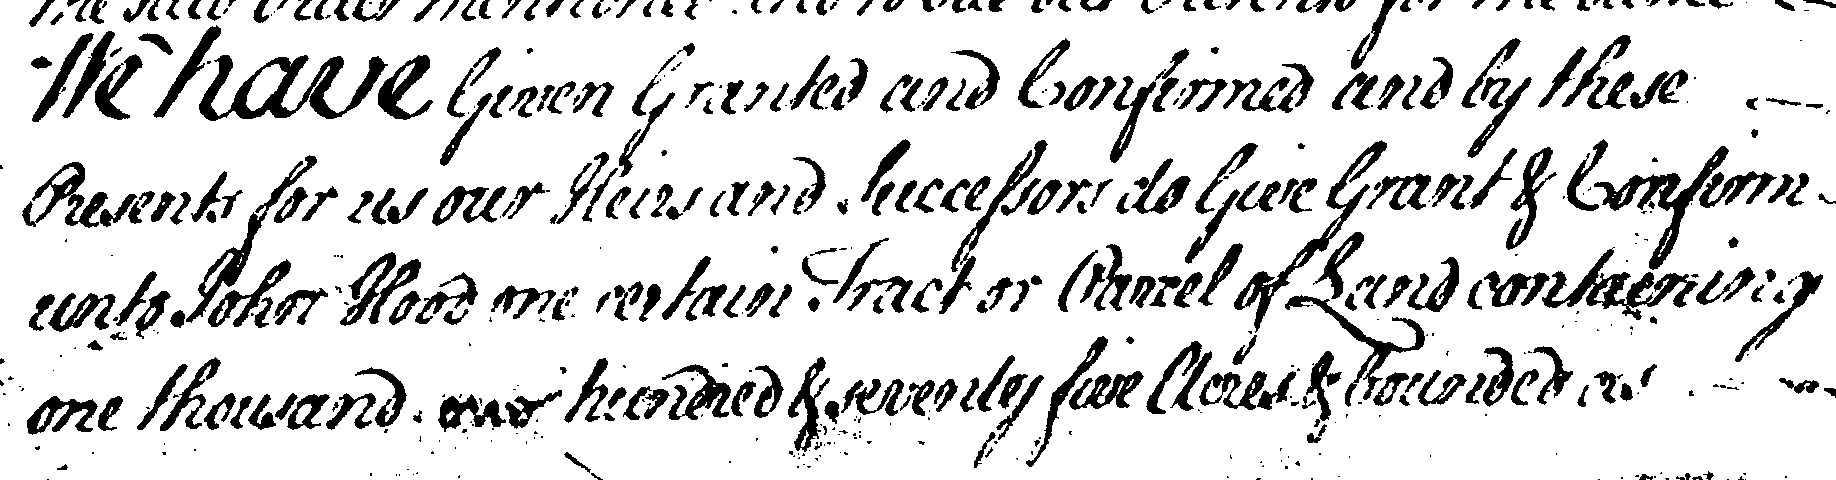 We have Given Granted and Confirmed and by these
Presents for us our Heirs and Successors do Give Grant & Confirm
unto John Hood one certain Tract or Parcel of Land containing
one thousand hundred & seventy five Acres & bounded as